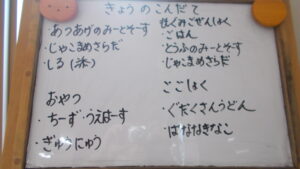 きょうのこんだて
あつあげのみーとそーす
・じゃこまめさらだ
・しる(添)
おやつ
・ちーず・うえはーす
・ぎゅうにゅう
はくみごぜんしょく
・ごはん
・とうふのみーとそーす
・じゃこまめさらだ
ごごしょく
・ぐだくさんうどん
・ばななきなこ